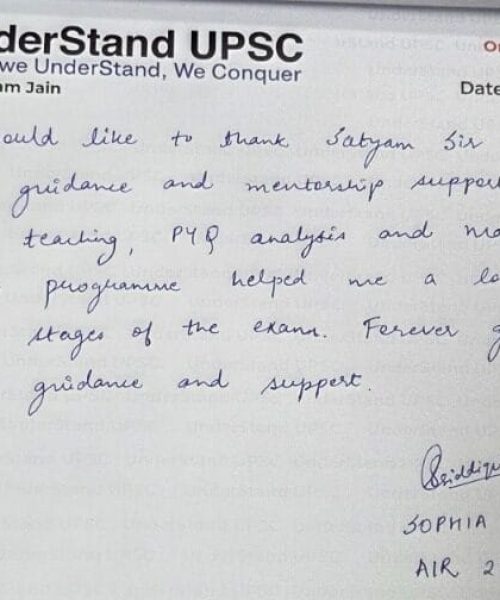 derStand UPSC
we UnderStand, We Conquer
am Jain
Date
ould like to thank Satyam Sir
guidance and mentorship support
teaching, PYQ analysis and
programme helped me a
stages of the exam. Forever
guidance and support.
SOPHIA
AIR 2